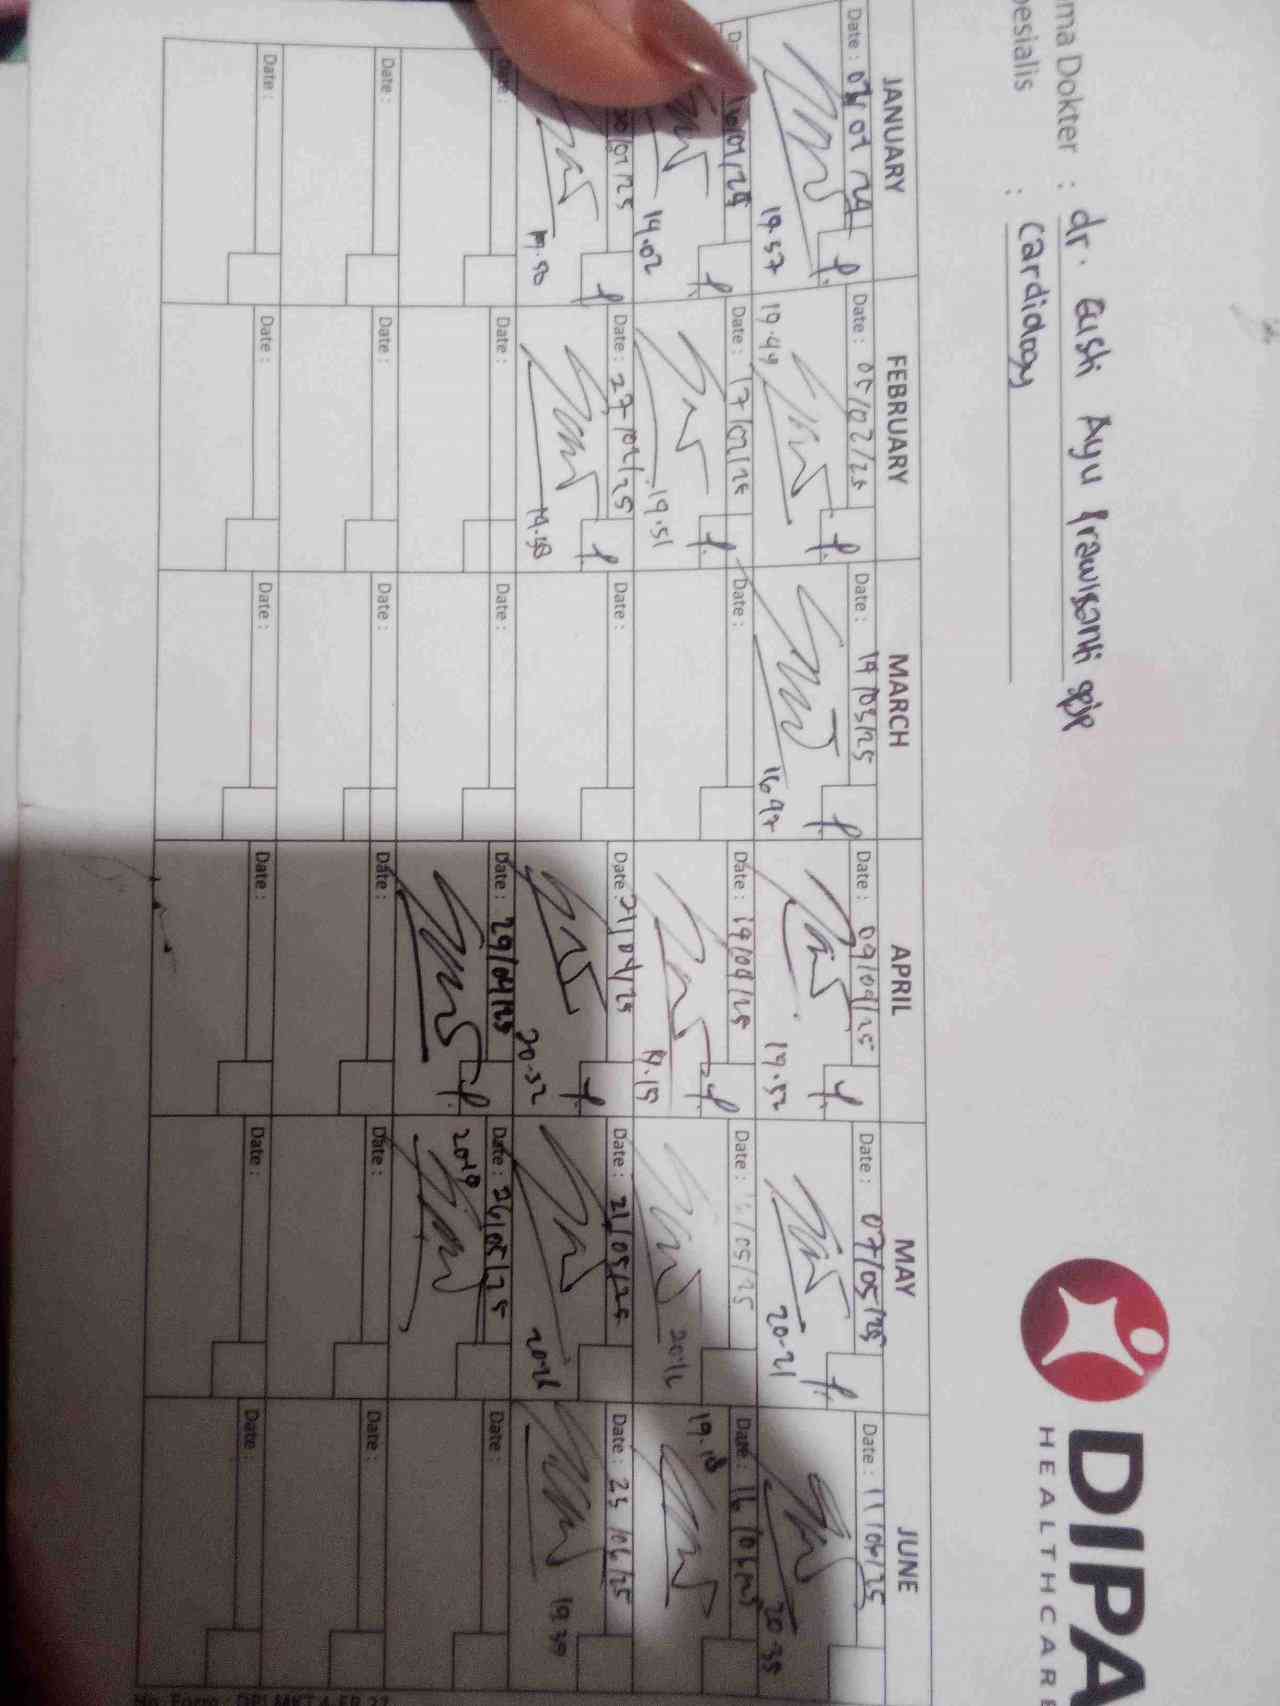 DIPA
HEALTHCARE
ma Dokter : dr. Gusti Ayu Prawisanti spjp
pesialis : Cardiology
JANUARY FEBRUARY MARCH APRIL MAY JUNE
Date : 01 24 Date : 05/02/25 Date : 19/03/25 Date : 09/04/25 Date : 07/05/25 Date : 11/06/25
19.57 19.49 16.47 19.52 20-21 20-35
16/01/25 Date : 17/02/25 Date : Date : 19/04/25 Date : /05/25 Date : 16/06/25
19.02 19.51 19.15 20:16 19.18
30/01/25 Date : 27/02/25 Date : Date : 21/04/25 Date : 21/05/25 Date : 25/06/25
19.50 20-32 19.39
Date : Date : Date : 29/04/25 Date : 26/05/25 Date :
Date : Date : Date : Date : Date : Date :
Date : Date : Date : Date : Date : Date :
No. Form :